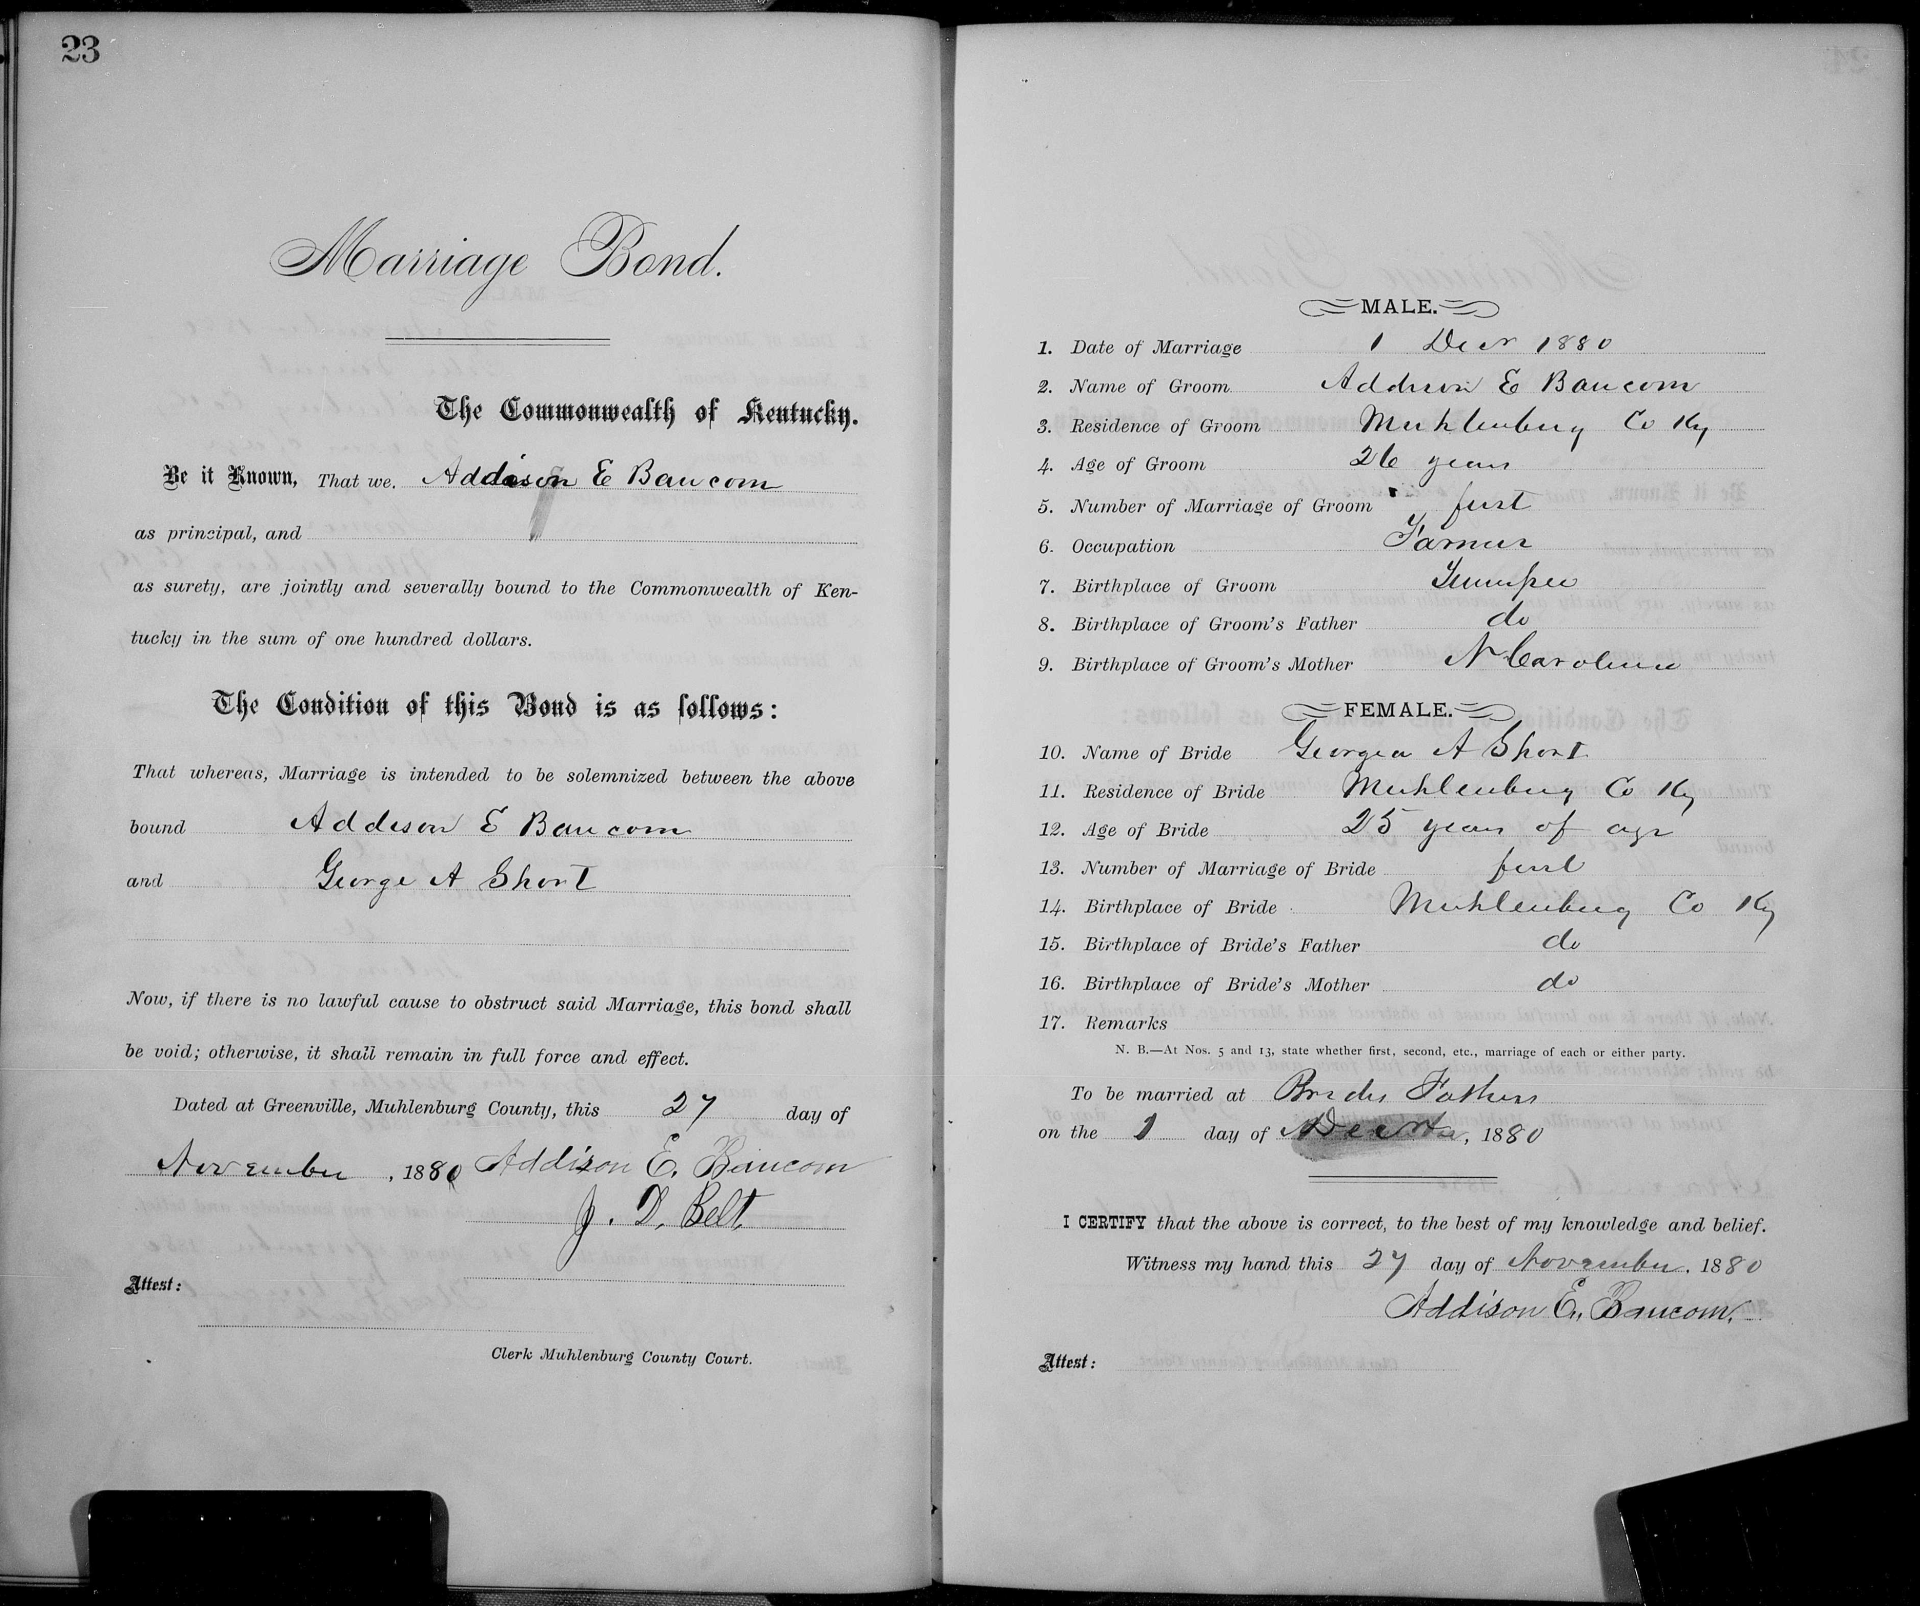 23
Marriage Bond.
The Commonwealth of Kentucky.
Be it Known, That we, Addison E Baucom
as principal, and
as surety, are jointly and severally bound to the Commonwealth of Ken-
tucky in the sum of one hundred dollars.
The Condition of this Bond is as follows:
That whereas, Marriage is intended to be solemnized between the above
bound Addison E Baucom
and George A Short
Now, if there is no lawful cause to obstruct said Marriage, this bond shall
be void; otherwise, it shall remain in full force and effect.
Dated at Greenville, Muhlenburg County, this 27 day of
November, 1880 Addison E. Baucom
J. D. Belt
Attest:
Clerk Muhlenburg County Court.
MALE.
1. Date of Marriage 1 Decr 1880
2. Name of Groom Addison E Baucom
3. Residence of Groom Muhlenburg Co Ky
4. Age of Groom 26 years
5. Number of Marriage of Groom first
6. Occupation Farmer
7. Birthplace of Groom Tennessee
8. Birthplace of Groom's Father do
9. Birthplace of Groom's Mother N Carolina
FEMALE.
10. Name of Bride Georgea A Short
11. Residence of Bride Muhlenburg Co Ky
12. Age of Bride 25 years of age
13. Number of Marriage of Bride first
14. Birthplace of Bride Muhlenburg Co Ky
15. Birthplace of Bride's Father do
16. Birthplace of Bride's Mother do
17. Remarks
N. B.—At Nos. 5 and 13, state whether first, second, etc., marriage of each or either party.
To be married at Brides Fathers
on the 1 day of , 1880
I CERTIFY that the above is correct, to the best of my knowledge and belief.
Witness my hand this 27 day of November, 1880
Addison E. Baucom.
Attest: